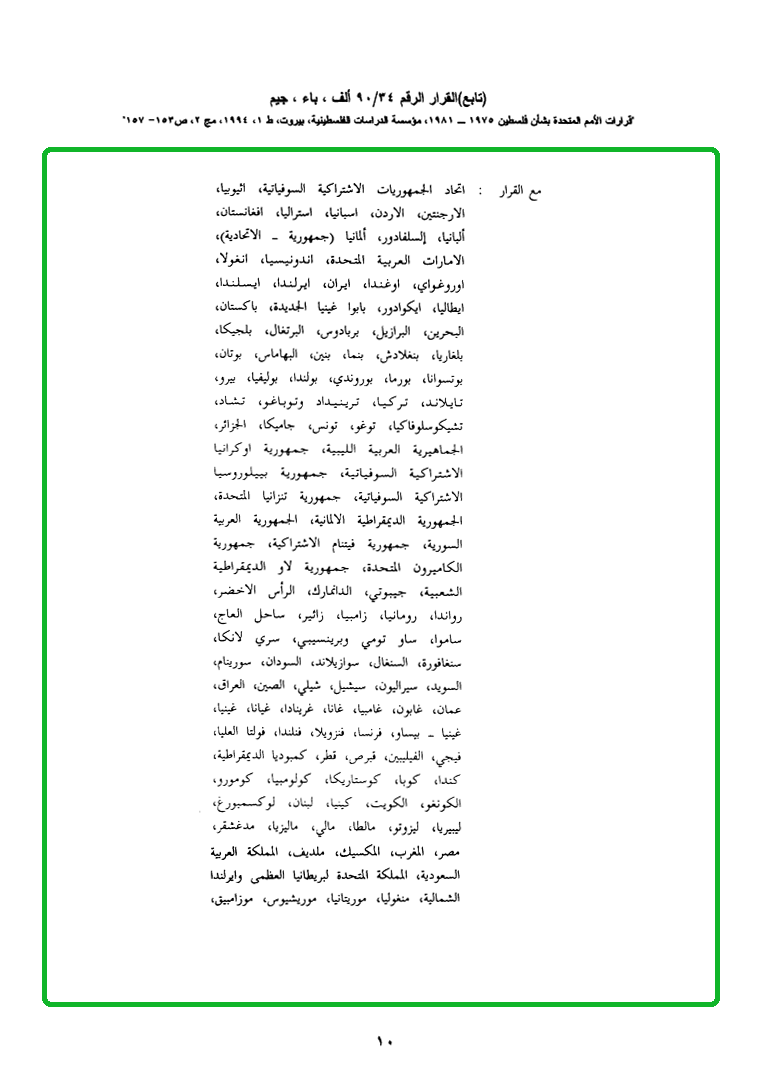 (تابع)القرار الرقم ٩٠/٣٤ ألف ، باء ، جيم
"قرارات الأمم المتحدة بشأن فلسطين ١٩٧٥ ــ ١٩٨١، مؤسسة الدراسات الفلسطينية، بيروت، ط ١، ١٩٩٤، مج ٢، ص١٥٣- ١٥٧"
مع القرار : اتحاد الجمهوريات الاشتراكية السوفياتية، اثيوبيا،
الارجنتين، الاردن، اسبانيا، استراليا، افغانستان،
ألبانيا، إلسلفادور، ألمانيا (جمهورية ــ الاتحادية)،
الامارات العربية المتحدة، اندونيسيا، انغولا،
اوروغواي، اوغندا، ايران، ايرلندا، ايسلندا،
ايطاليا، ايكوادور، بابوا غينيا الجديدة، باكستان،
البحرين، البرازيل، بربادوس، البرتغال، بلجيكا،
بلغاريا، بنغلادش، بنما، بنين، البهاماس، بوتان،
بوتسوانا، بورما، بوروندي، بولندا، بوليفيا، بيرو،
تايلاند، تركيا، ترينيداد وتوباغو، تشاد،
تشيكوسلوفاكيا، توغو، تونس، جاميكا، الجزائر،
الجماهيرية العربية الليبية، جمهورية اوكرانيا
الاشتراكية السوفياتية، جمهورية بييلوروسيا
الاشتراكية السوفياتية، جمهورية تنزانيا المتحدة،
الجمهورية الديمقراطية الالمانية، الجمهورية العربية
السورية، جمهورية فيتنام الاشتراكية، جمهورية
الكاميرون المتحدة، جمهورية لاو الديمقراطية
الشعبية، جيبوتي، الدانمارك، الرأس الاخضر،
رواندا، رومانيا، زامبيا، زائير، ساحل العاج،
ساموا، ساو تومي وبرينسيبي، سري لانكا،
سنغافورة، السنغال، سوازيلاند، السودان، سورينام،
السويد، سيراليون، سيشيل، شيلي، الصين، العراق،
عمان، غابون، غامبيا، غانا، غرينادا، غيانا، غينيا،
غينيا ــ بيساو، فرنسا، فنزويلا، فنلندا، فولتا العليا،
فيجي، الفيليبين، قبرص، قطر، كمبوديا الديمقراطية،
كندا، كوبا، كوستاريكا، كولومبيا، كومورو،
الكونغو، الكويت، كينيا، لبنان، لوكسمبورغ،
ليبيريا، ليزوتو، مالطا، مالي، ماليزيا، مدغشقر،
مصر، المغرب، المكسيك، ملديف، المملكة العربية
السعودية، المملكة المتحدة لبريطانيا العظمى وايرلندا
الشمالية، منغوليا، موريتانيا، موريشيوس، موزامبيق،
١٠